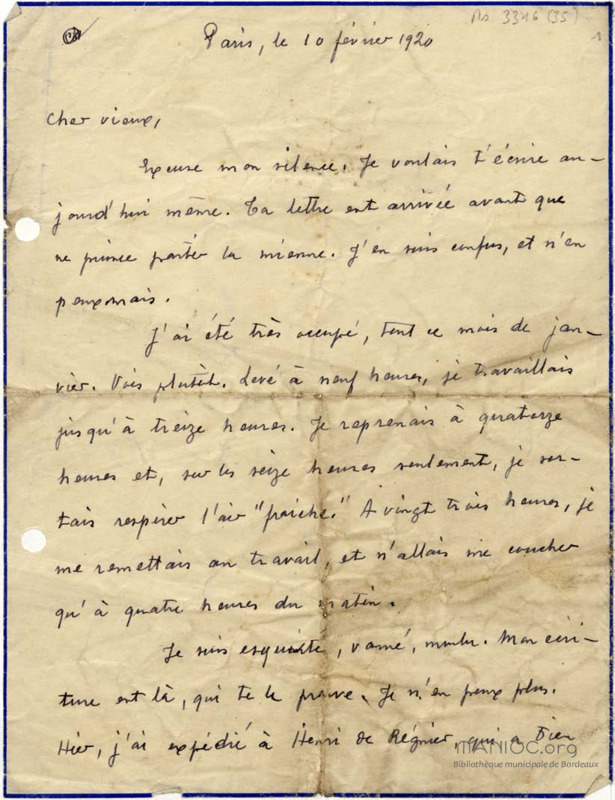 Ms 3346 (35)
1
Paris, le 10 février 1920
Cher vieux,
Excuse mon silence. Je voulais t'écrire au-
jourd'hui même. Ta lettre est arrivée avant que
ne puisse partir la mienne. J'en suis confus, et n'en
peux mais.
J'ai été très occupé, tout ce mois de jan-
vier. Vois plutôt. Levé à neuf heures, je travaillais
jusqu'à treize heures. Je reprenais à quatorze
heures et, sur les seize heures seulement, je sor-
tais respirer l'air "fraiche." A vingt trois heures, je
me remettais au travail, et n'allais me coucher
qu'à quatre heures du matin.
Je suis esquinté, vanné, moulu. Mon écri-
ture est là, qui te le prouve. Je n'en peux plus.
Hier, j'ai expédié à Henri de Régnier, qui a bien
MANIOC.org
Bibliothèque municipale de Bordeaux